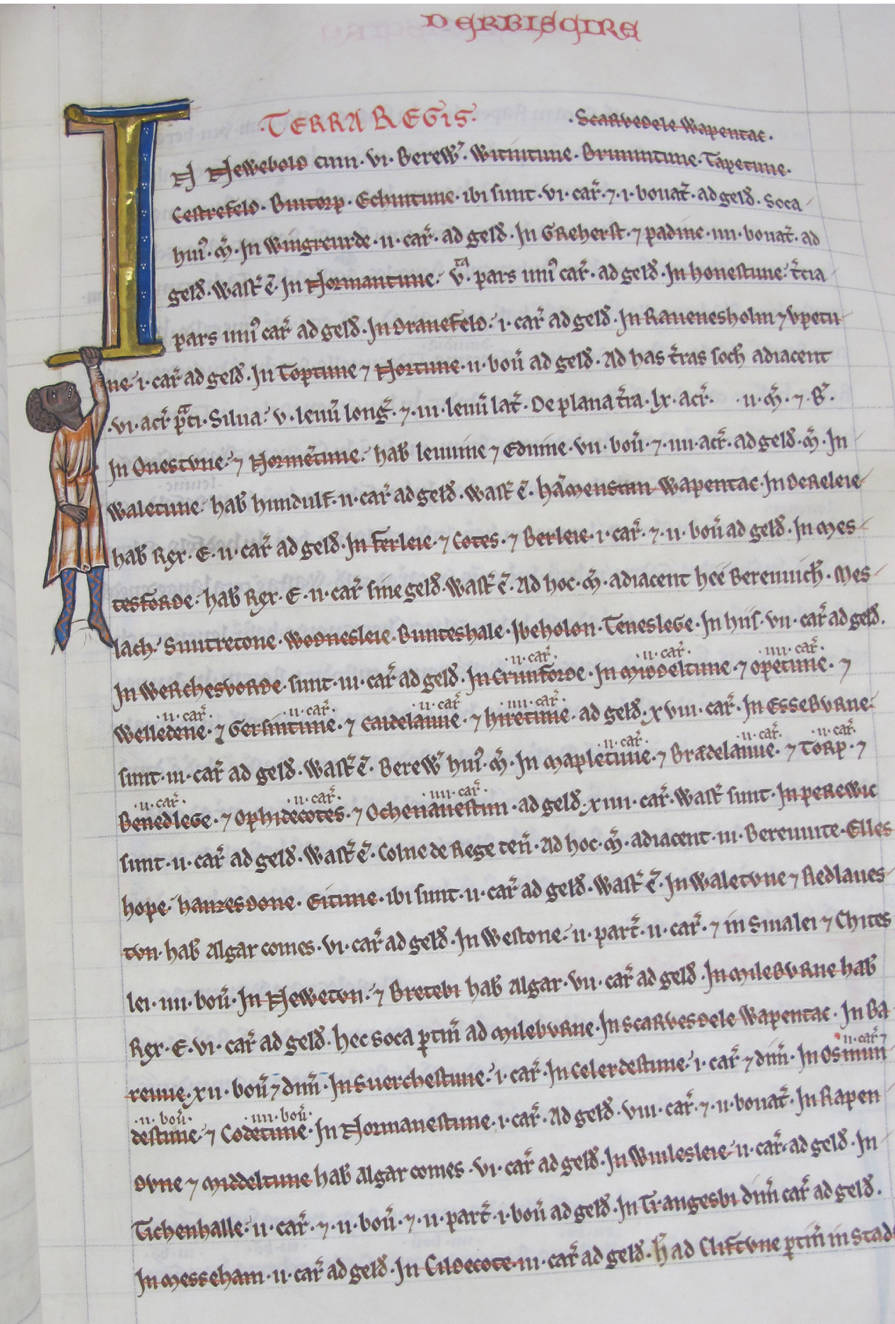 DERBISCIRE
TERRA REGIS. Scarvedele Wapentac.
IN Newebold cum .vi. Berew̃. Witintune. Brimintune. Tapetune.
Cestrefeld. Buitorp. Echintune. ibi sunt .vi. car̃. ⁊ .i. bouat̃. ad geld̃. Soca
hui᷒. m̃. In Wingreurde .ii. car̃. ad geld̃. In Greherst. ⁊ padine .iiii. bouat̃. ad
geld̃. Wast̃ ẽ. In Normantune. v.ta pars uni᷒ car̃. ad geld̃. In honestune. t̃cia
pars uni᷒ car̃ ad geld̃. In Dranefeld. .i. car̃ ad geld̃. In Rauenesholm ⁊ vpetu
ne .i. car̃ ad geld̃. In Toptune ⁊ Nortune .ii. boũ ad geld̃. Ad has t̃ras soch̃ adiacent
.vi. acr̃ p̃ti. Silua .v. leuũ long̃. ⁊ .iii. leuũ lat̃. De plana t̃ra .lx. acr̃. .ii. m̃. ⁊ B̃.
In Onestvne. ⁊ Normẽtune. hab̃ leuuine ⁊ Eduine .vii. boũ. ⁊ .iiii. acr̃. ad geld̃. m̃. In
Waletune. hab̃ hundulf .ii. car̃ ad geld̃. Wast̃ ẽ. hãmenstan Wapentac. In Dereleie
hab̃ Rex .E. ii. car̃ ad geld̃. In Ferleie. ⁊ Cotes. ⁊ Berleie. i. car̃. ⁊ .ii. boũ ad geld̃. In Mes
tesforde. hab̃ Rex .E. ii. car̃ sine geld̃. Wast̃ ẽ. Ad hoc. m̃. adiacent hec Bereuuich̃. Mes
lach. Suntretone. Wodnesleie. Bunteshale. Ibeholon. Teneslege. In his .vii. car̃ ad geld̃.
.ii. car̃. .ii. car̃. .iiii. car̃.
In Werchesvorde. sunt .iii. car̃ ad geld̃. In Crunforde. In Middeltune. ⁊ opetune. ⁊
.ii. car̃. .ii. car̃. .ii. car̃. .iiii. car̃.
Welledene. ⁊ Gersintune. ⁊ Caldelauue. ⁊ hiretune. ad geld̃ .xviii. car̃. In Esseburne.
sunt .iii. car̃ ad geld̃. Wast̃ ẽ. Berew̃ hui᷒. m̃. In Mapletune. ⁊ Brædelauue. ⁊ Torp. ⁊
.ii. car̃. .ii. car̃. .iiii. car̃.
Benedlege. ⁊ Ophidecotes. ⁊ Ochenauestun. ad geld̃ .xiiii. car̃. Wast̃ sunt. In perewic
sunt .ii. car̃ ad geld̃. Wast̃ ẽ. Colne de Rege teñ. Ad hoc. m̃. adiacent .iii. Bereuuite. Elles
hope. hanzesdone. Eitune. ibi sunt .ii. car̃ ad geld̃. Wast̃ ẽ. In Waletvne ⁊ Aedlaues
tvn. hab̃ Algar comes .vi. car̃ ad geld̃. In Westone. .ii. part̃ .ii. car̃. ⁊ in Smalei ⁊ Chites
lei .iiii. boũ. In Newetvn. ⁊ Bretebi hab̃ Algar .vii. car̃ ad geld̃. In Mileburne hab̃
Rex .E. vi. car̃ ad geld̃. hec soca ptiñ ad Mileburne. In Scarvesdele Wapentac. In Ba
reuue .xii. boũ ⁊ dim̃. In Suerchestune. .i. car̃. In Celerdestune. .i. car̃ ⁊ dim̃. In Osmun
.ii. boũ. .iiii. boũ.
destune. ⁊ Codetune. In Normanestune .i. car̃. Ad geld̃ .viii. car̃. ⁊ .ii. bouat̃. In Rapen
dvne ⁊ Middeltune hab̃ Algar comes .vi. car̃ ad geld̃. In Winlesleie .ii. car̃ ad geld̃. In
Tichenhalle .ii. car̃. ⁊ .ii. boũ. ⁊ .ii. part̃ .i. boũ ad geld̃. In Trangesbi dim̃ car̃ ad geld̃.
In Messeham .ii. car̃ ad geld̃. In Cildecote .iii. car̃ ad geld̃. H̃ ad Cliftvne ptiñ in Stad